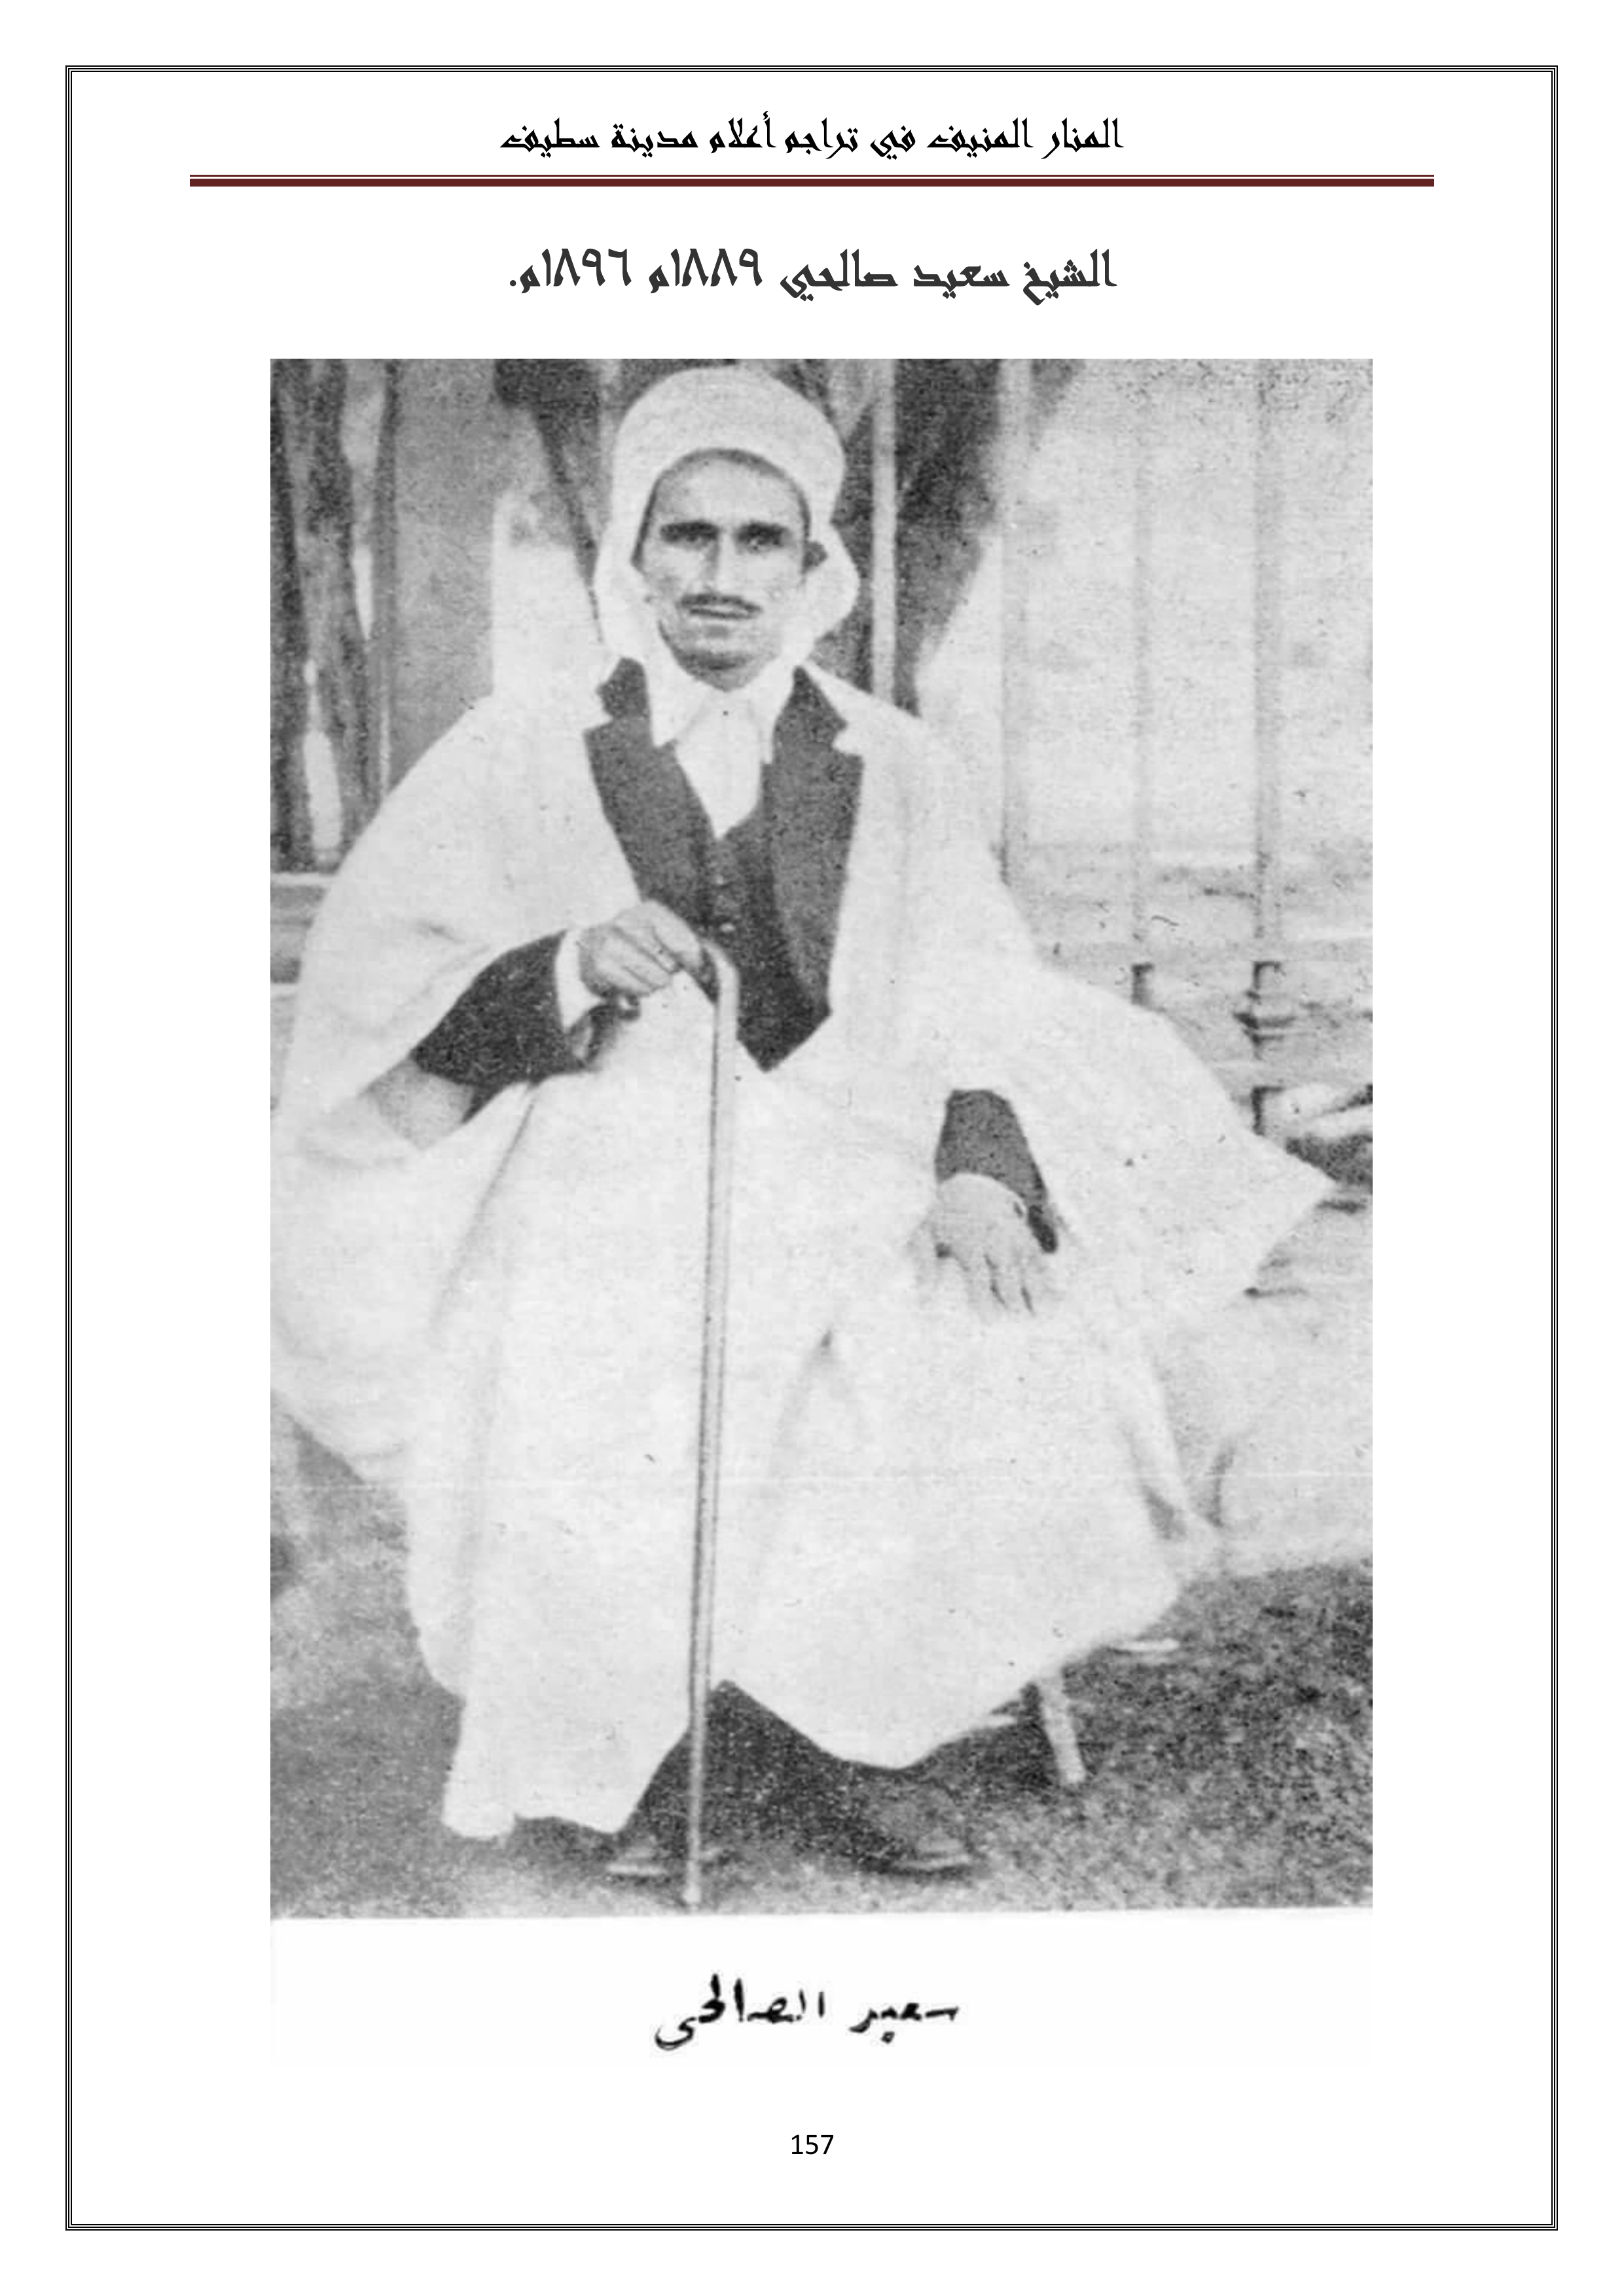 المنار المنيف في تراجم أعلام مدينة سطيف
الشيخ سعيد صالحي ١٨٨٩م ١٨٩٦م.
سعيد الصالحي
157